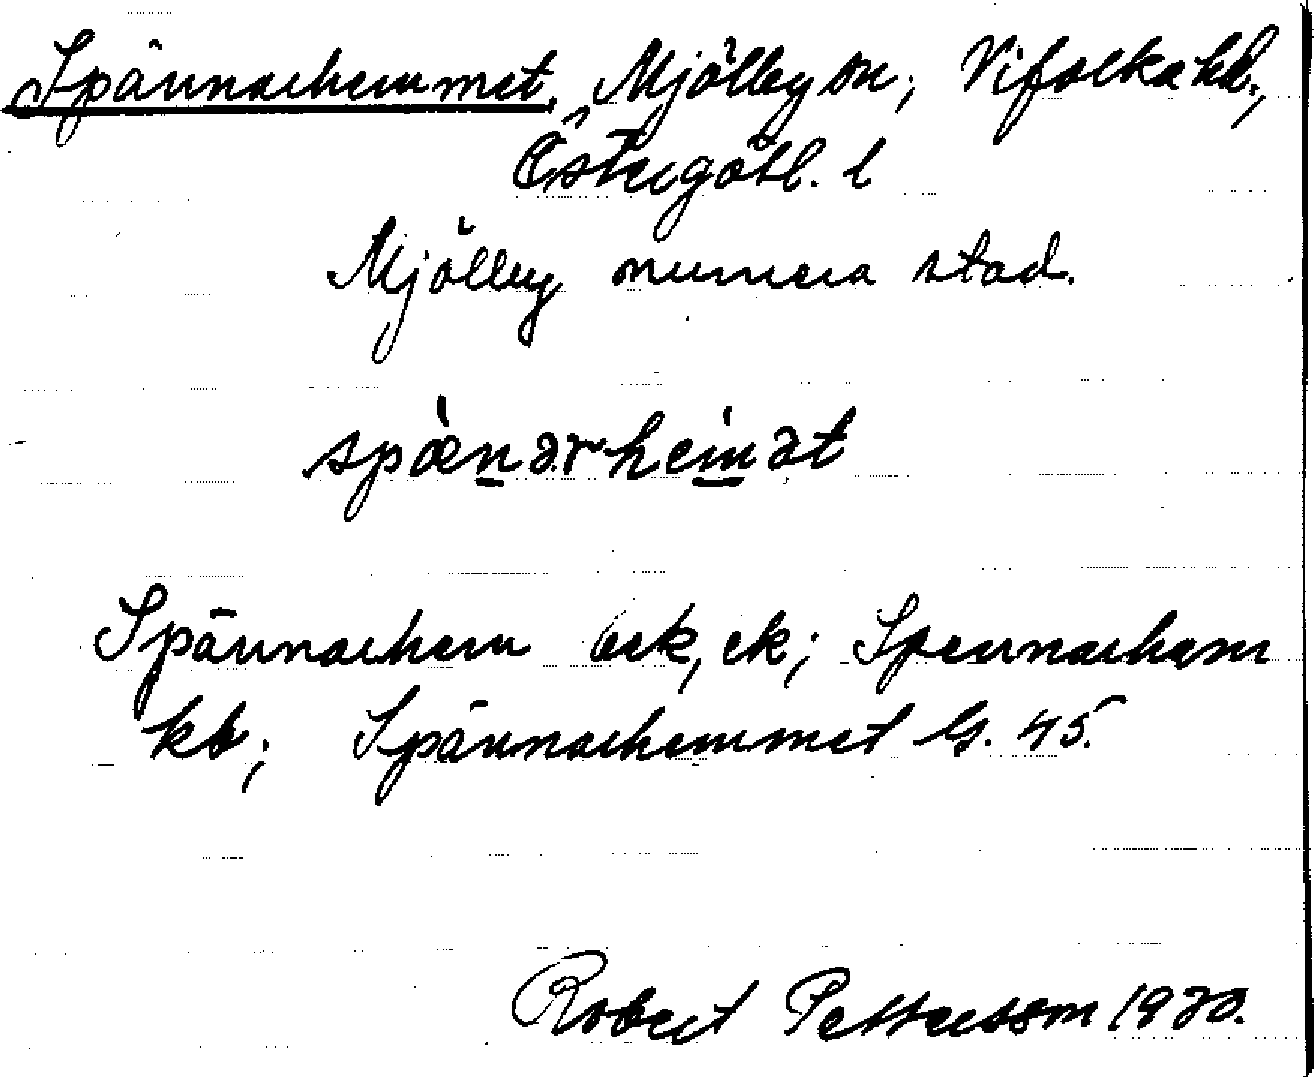 Spännarhemmet, Mjölby sn; Vifolka hd.,
Östergötl. l
Mjölby numera stad.
spæ̀nərhemət
Spännarhem ek; Spennarhem
kb; Spännarhemmet 45.
Robert Pettersson 1930.